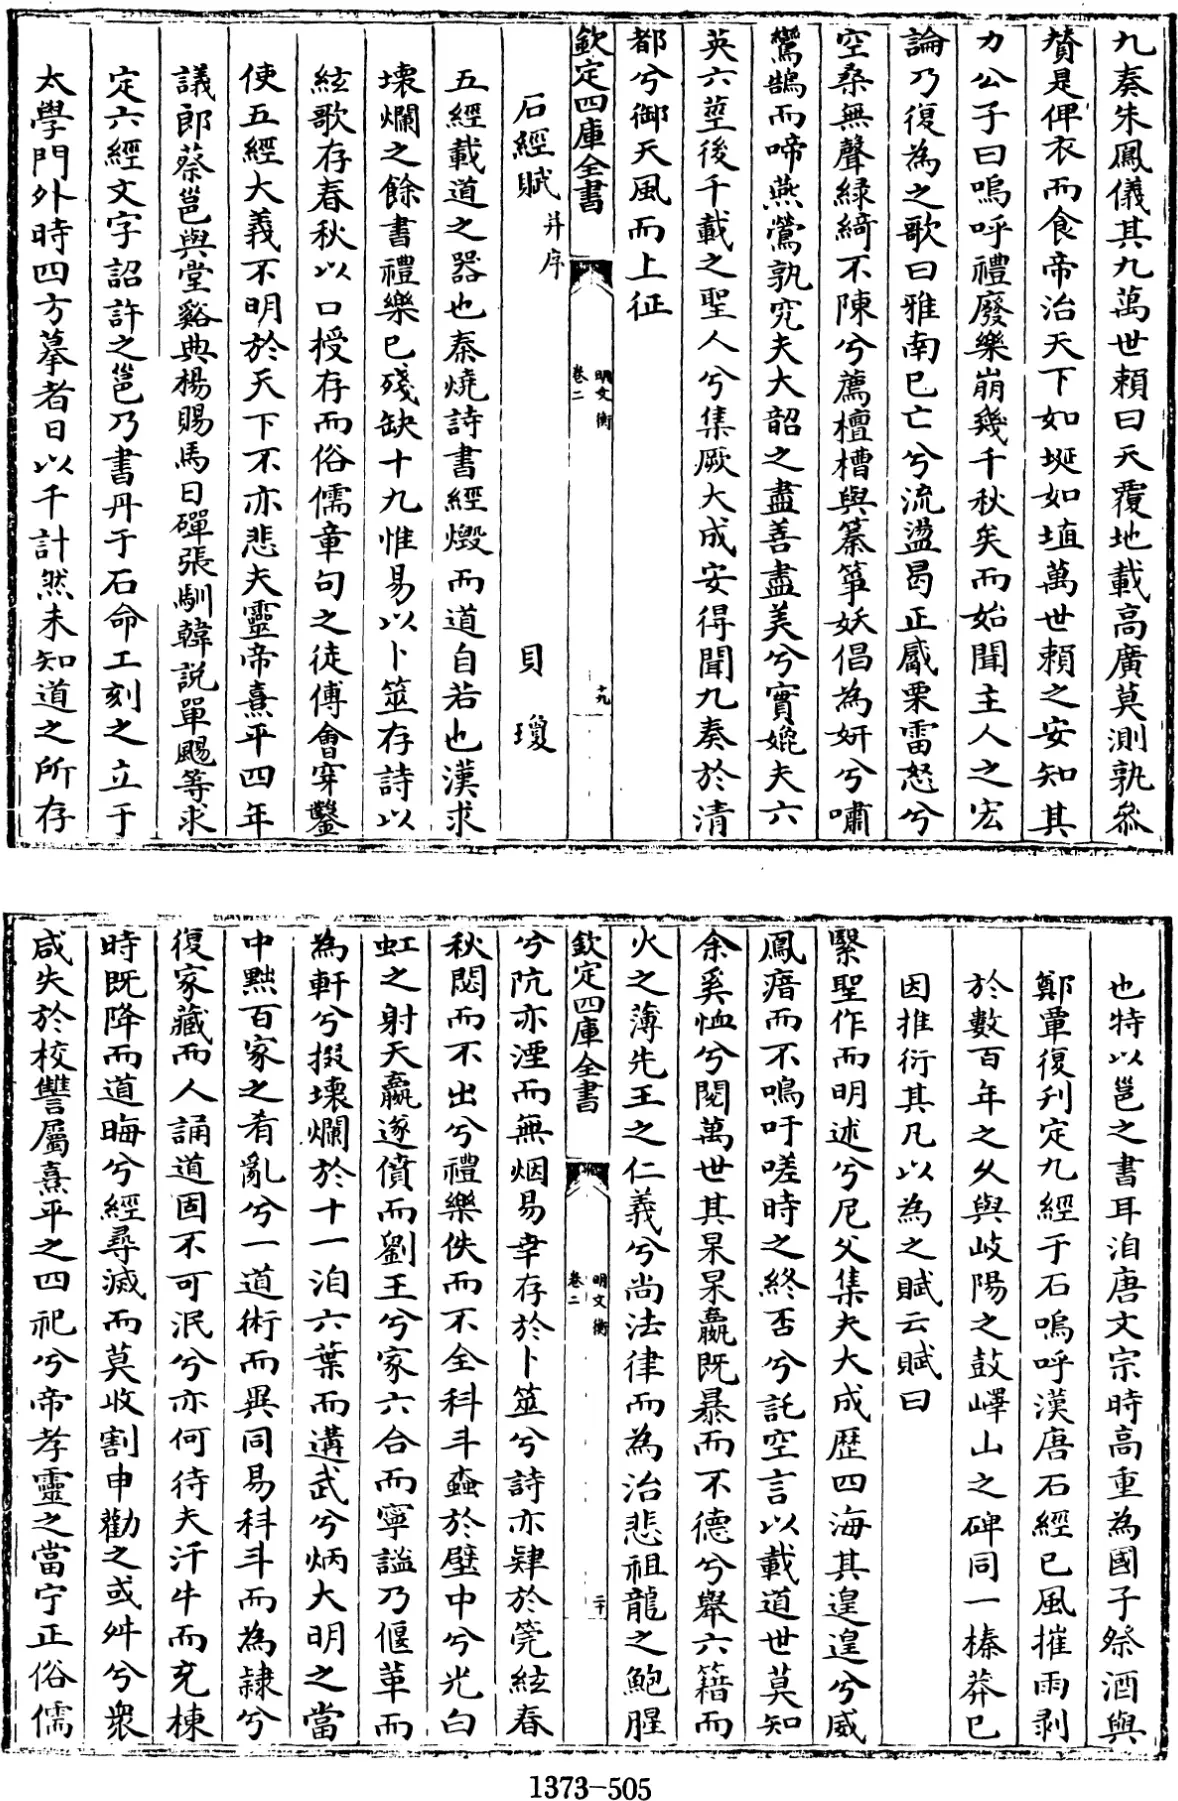 九奏朱鳳儀其九萬世頼曰天覆地載高廣莫測孰叅
賛是俾衣而食帝治天下如埏如埴萬世頼之安知其
力公子曰嗚呼禮廢樂崩幾千秋矣而始聞主人之宏
論乃復為之歌曰雅南已亡兮流盪曷正感栗雷怒兮
空桑無聲緑綺不陳兮薦檀槽與纂箏妖倡為妍兮嘯
鸞鵠而啼燕鶯孰究夫大韶之盡善盡美兮實媲夫六
英六莖後千載之聖人兮集厥大成安得聞九奏於清
都兮御天風而上征
欽定四庫全書
明文衡
卷二
十九
石經賦并序
貝瓊
五經載道之器也秦燒詩書經燬而道自若也漢求
壊爛之餘書禮樂已殘缺十九惟易以卜筮存詩以
絃歌存春秋以口授存而俗儒章句之徒傅會穿鑿
使五經大義不明於天下不亦悲夫靈帝熹平四年
議郎蔡邕與堂谿典楊賜馬日磾張馴韓説單颺等求
定六經文字詔許之邕乃書丹于石命工刻之立于
太學門外時四方摹者日以千計然未知道之所存
也特以邕之書耳洎唐文宗時高重為國子祭酒與
鄭覃復刋定九經于石嗚呼漢唐石經已風摧雨剥
於數百年之久與岐陽之鼓嶧山之碑同一榛莽已
因推衍其凡以為之賦云賦曰
繄聖作而明述兮尼父集夫大成歴四海其遑遑兮威
鳳瘖而不鳴吁嗟時之終否兮託空言以載道世莫知
余奚恤兮閱萬世其杲杲嬴既暴而不德兮舉六籍而
火之薄先王之仁義兮尚法律而為治悲祖龍之鮑腥
欽定四庫全書
明文衡
卷二
二十
兮阬亦湮而無烟易幸存於卜筮兮詩亦肄於筦絃春
秋閟而不出兮禮樂佚而不全科斗蟲於壁中兮光白
虹之射天嬴遂僨而劉王兮家六合而寧謐乃偃革而
為軒兮掇壊爛於十一洎六葉而遘武兮炳大明之當
中黜百家之肴亂兮一道術而異同易科斗而為隷兮
復家藏而人誦道固不可泯兮亦何待夫汗牛而充棟
時既降而道晦兮經尋滅而莫收割申勸之或舛兮衆
咸失於校讐屬熹平之四祀兮帝孝靈之當宁正俗儒
1373-505